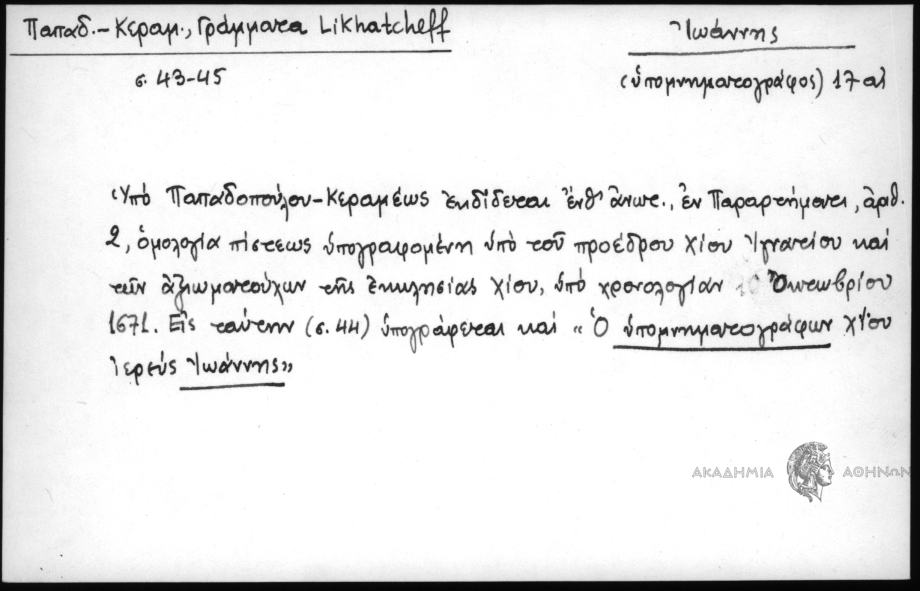 Παπαδ.-Κεραμ., Γράμματα Likhatcheff
Ἰωάννης
σ. 43-45
(ὑπομνηματογράφος) 17 αἰ
Ὑπὸ Παπαδοπούλου-Κεραμέως ἐκδίδεται ἔνθ' ἀνωτ., ἐν Παραρτήματι, ἀριθ.
2, ὁμολογία πίστεως ὑπογραφομένη ὑπὸ τοῦ προέδρου Χίου Ἰγνατίου καὶ
τῶν ἀξιωματούχων τῆς ἐκκλησίας Χίου, ὑπὸ χρονολογίαν 10 Ὀκτωβρίου
1671. Εἰς ταύτην (σ. 44) ὑπογράφεται καὶ « Ὁ ὑπομνηματογράφων Χίου
ἱερεὺς Ἰωάννης»
ΑΚΑΔΗΜΙΑ ΑΘΗΝΩΝ